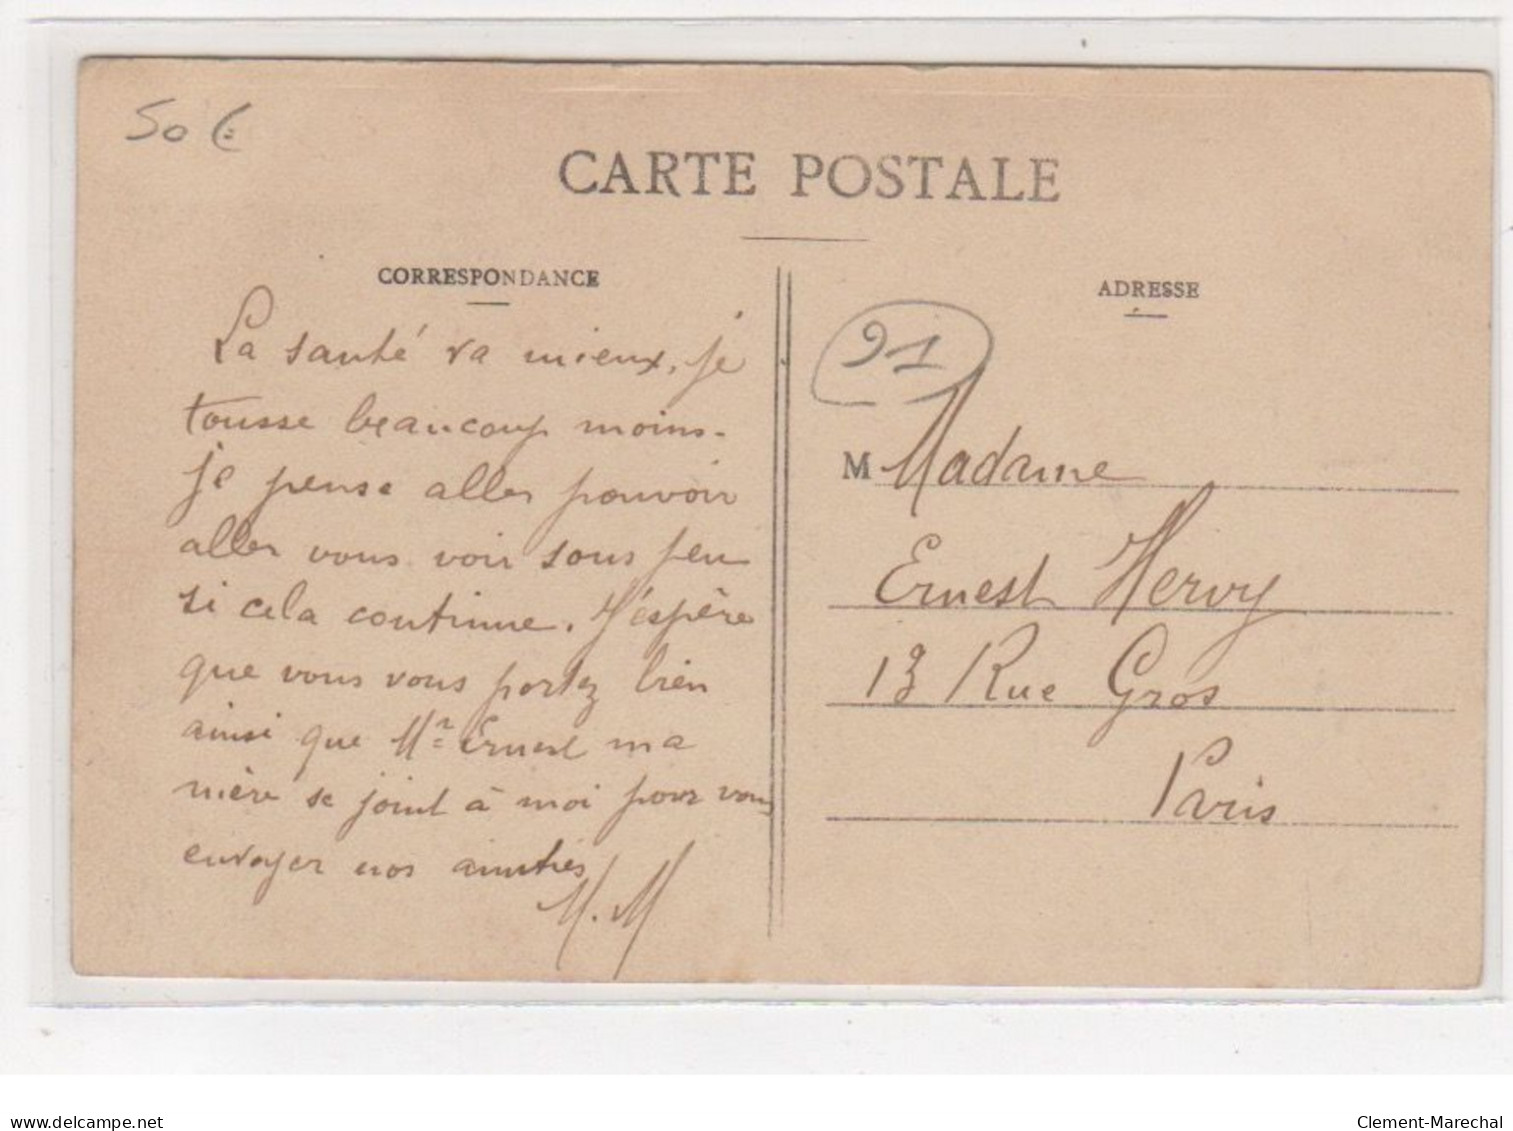 50 €
CARTE POSTALE
CORRESPONDANCE
La santé va mieux, je
tousse beaucoup moins.
je pense aller pouvoir
aller vous voir sous peu
si cela continue. J'espère
que vous vous portez bien
ainsi que Mr Ernest ma
mère se joint à moi pour vous
envoyer nos amitiés
M. M
ADRESSE
91
M Madame
Ernest Hervy
13 Rue Gros
Paris
www.delcampe.net
Clement-Marechal